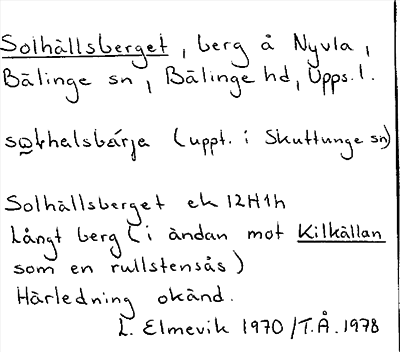 Solhällsberget, berg å Nyvla,
Bälinge sn, Bälinge hd, Upps. l.
so̤ɫhalsbárja (uppt. i Skuttunge sn)
Solhällsberget ek 12H1h
Långt berg (i ändan mot Kilkällan
som en rullstensås)
Härledning okänd.
L. Elmevik 1970/T.Å. 1978